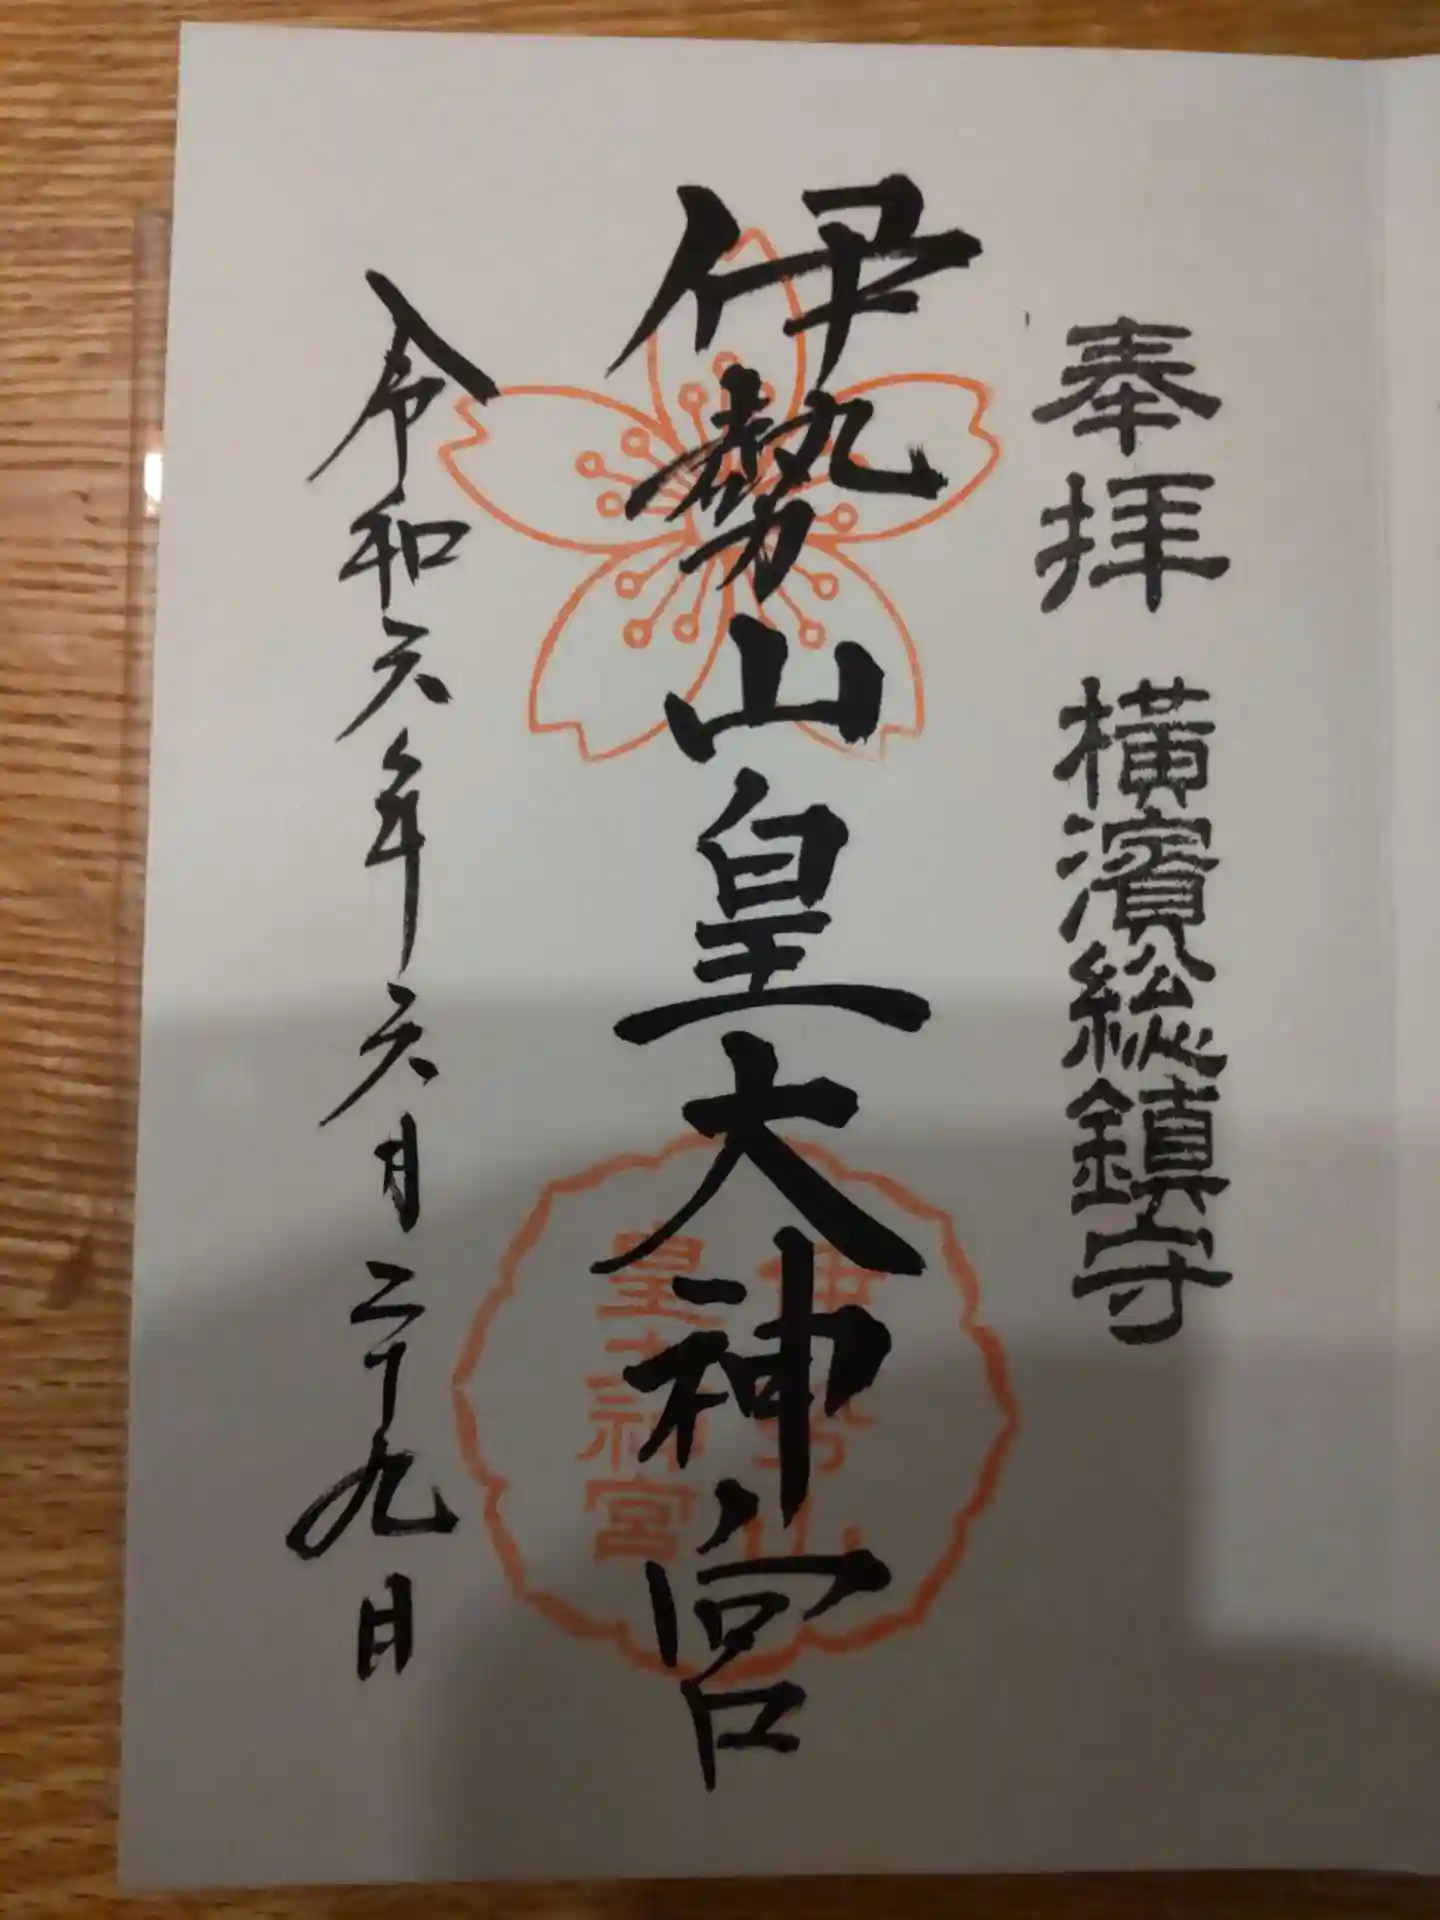 奉拝 横濱総鎮守
伊勢山皇大神宮
令和六年六月二十九日
伊勢山
皇大神宮